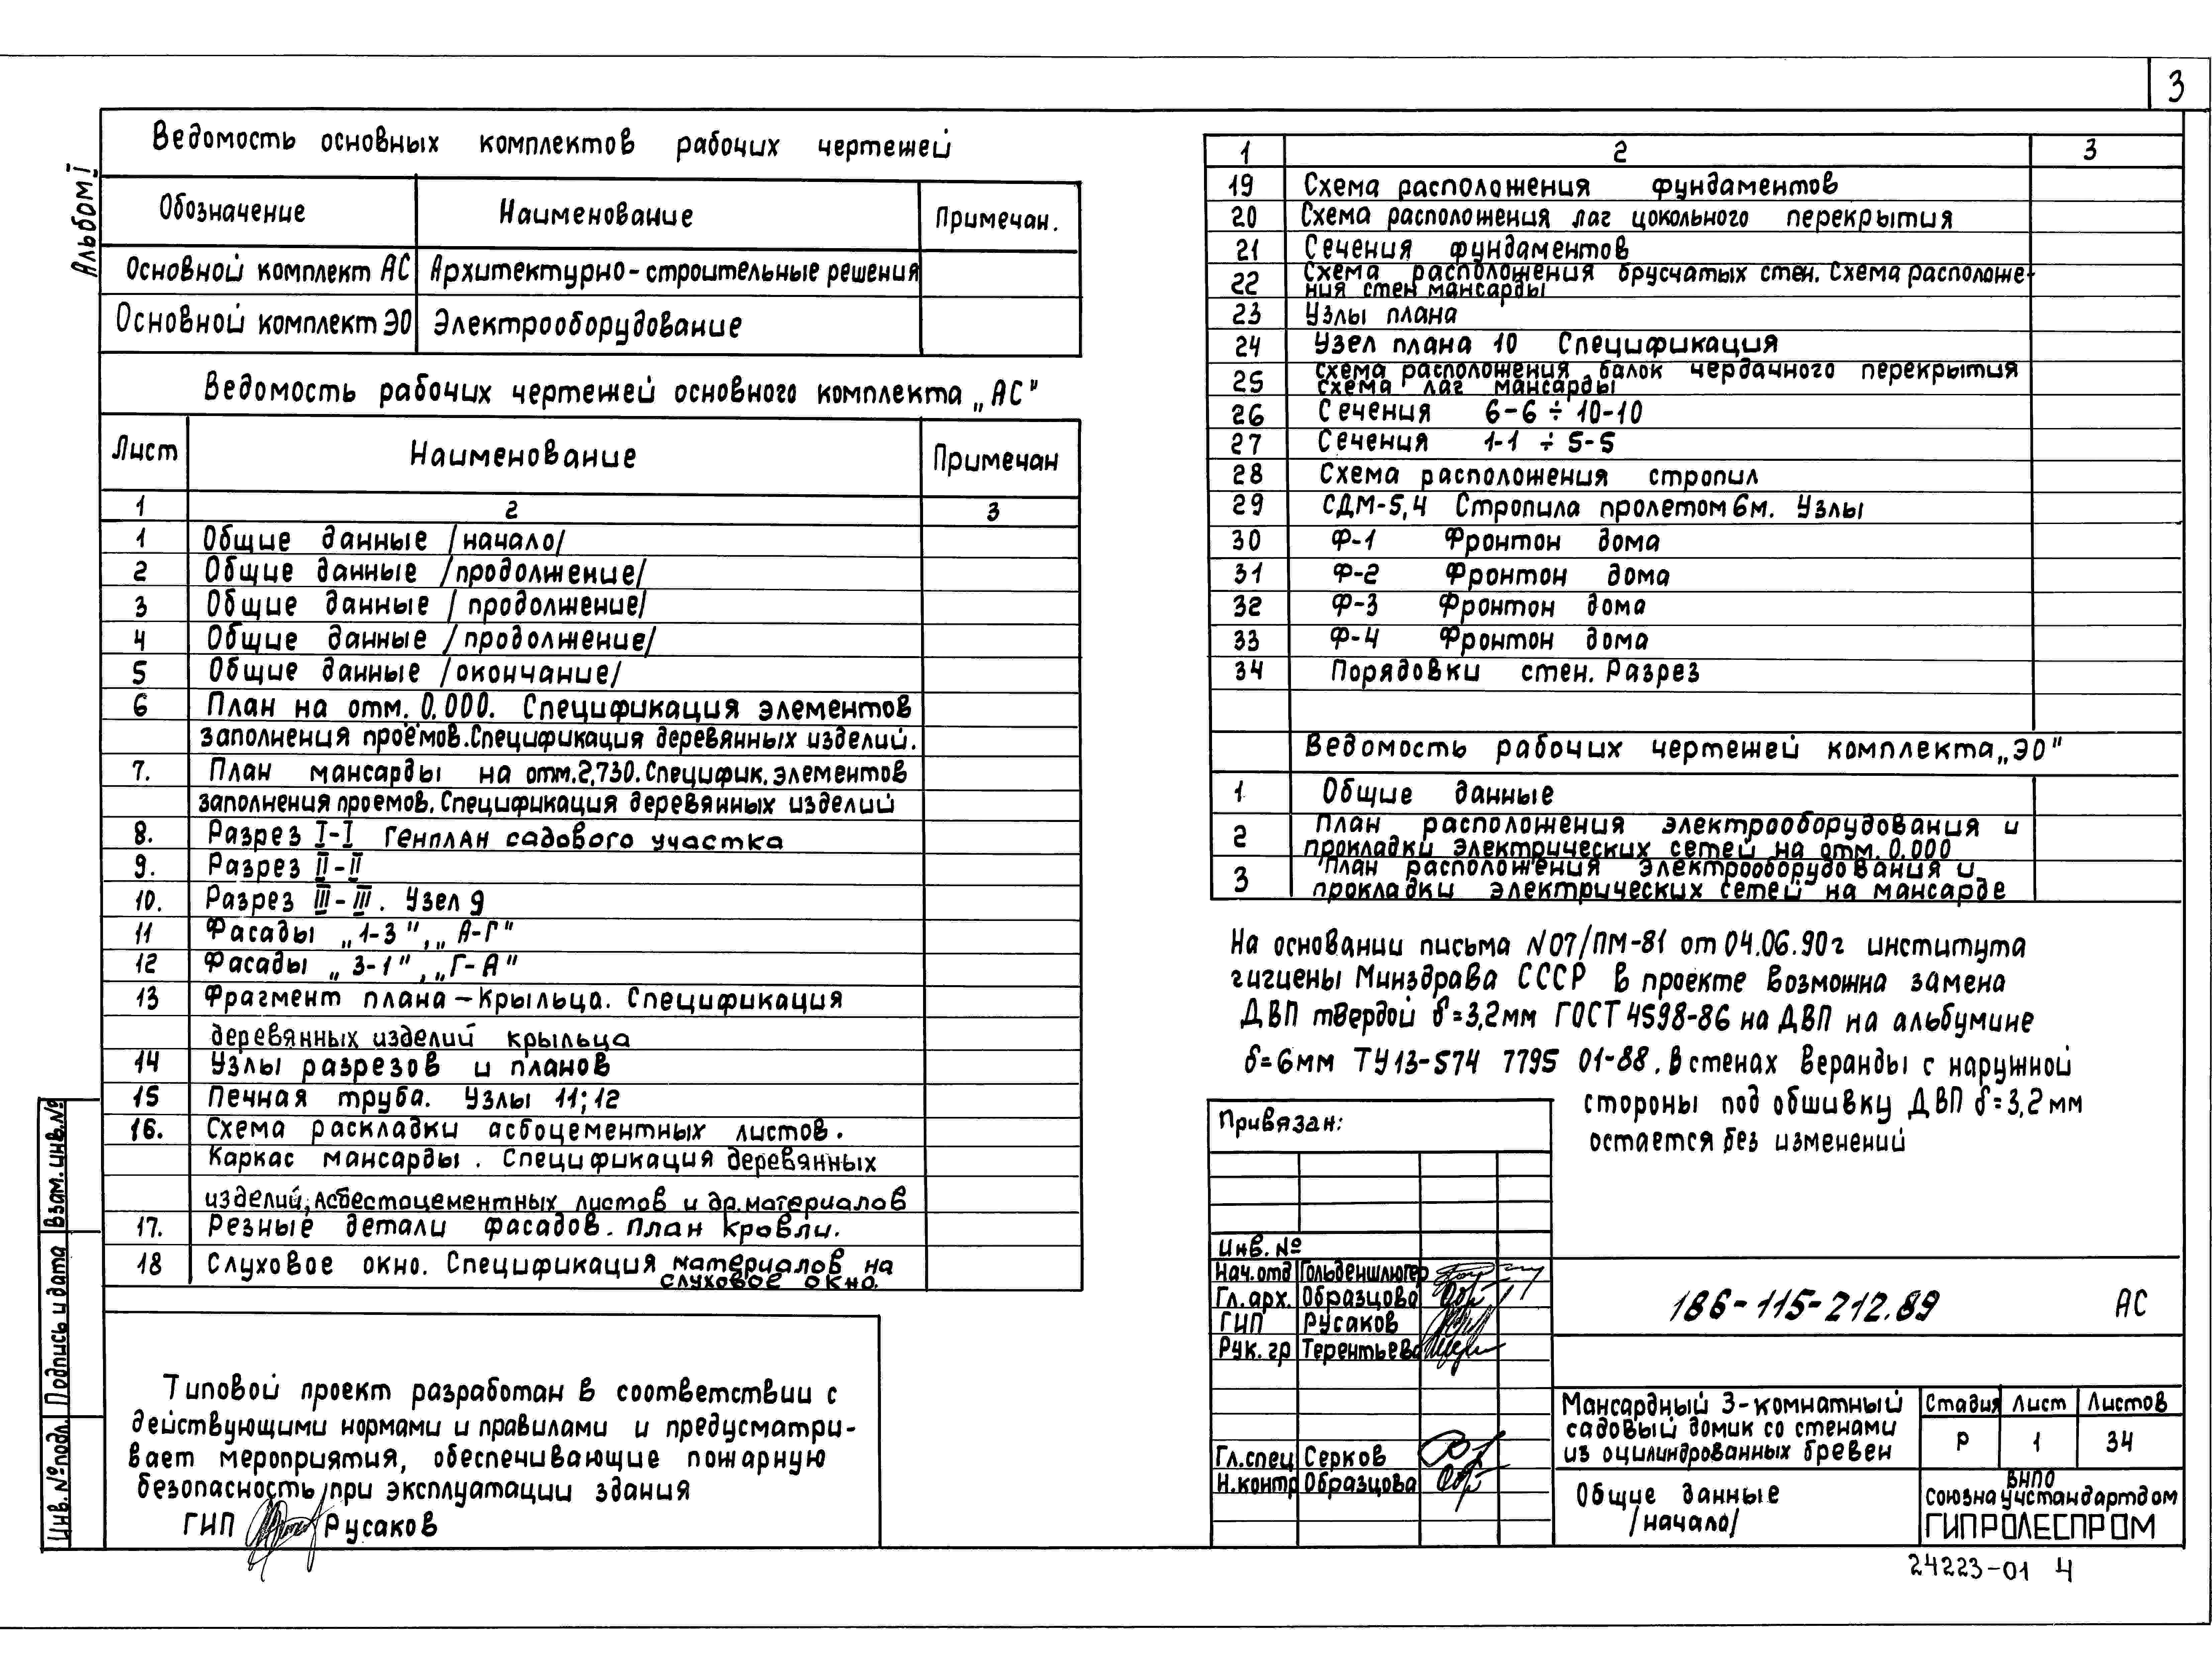 3
Альбом I
Ведомость основных комплектов рабочих чертежей
Обозначение Наименование Примечан.
Основной комплект АС Архитектурно-строительные решения
Основной комплект ЭО Электрооборудование
Ведомость рабочих чертежей основного комплекта „АС"
Лист Наименование Примечан
1 2 3
1 Общие данные /начало/
2 Общие данные /продолжение/
3 Общие данные /продолжение/
4 Общие данные /продолжение/
5 Общие данные /окончание/
6 План на отм. 0.000. Спецификация элементов
заполнения проёмов. Спецификация деревянных изделий.
7. План мансарды на отм. 2,730. Специфик. элементов
заполнения проемов. Спецификация деревянных изделий
8. Разрез I-I Генплан садового участка
9. Разрез II-II
10. Разрез III-III. Узел 9
11 Фасады „1-3", „А-Г"
12 Фасады „3-1", „Г-А"
13 Фрагмент плана - Крыльца. Спецификация
деревянных изделий крыльца
14 Узлы разрезов и планов
15 Печная труба. Узлы 11; 12
16. Схема раскладки асбоцементных листов.
Каркас мансарды. Спецификация деревянных
изделий, асбестоцементных листов и др. материалов
17. Резные детали фасадов. План кровли.
18 Слуховое окно. Спецификация материалов на
слуховое окно.
Типовой проект разработан в соответствии с
действующими нормами и правилами и предусматри-
вает мероприятия, обеспечивающие пожарную
безопасность при эксплуатации здания
ГИП Русаков
Взам. инв. №
Подпись и дата
Инв. № подл.
1 2 3
19 Схема расположения фундаментов
20 Схема расположения лаг цокольного перекрытия
21 Сечения фундаментов
22 Схема расположения брусчатых стен. Схема расположе-
ния стен мансарды
23 Узлы плана
24 Узел плана 10 Спецификация
25 Схема расположения балок чердачного перекрытия
схема лаг мансарды
26 Сечения 6-6 ÷ 10-10
27 Сечения 1-1 ÷ 5-5
28 Схема расположения стропил
29 СДМ-5,4 Стропила пролетом 6м. Узлы
30 Ф-1 Фронтон дома
31 Ф-2 Фронтон дома
32 Ф-3 Фронтон дома
33 Ф-4 Фронтон дома
34 Порядовки стен. Разрез
Ведомость рабочих чертежей комплекта „ЭО"
1 Общие данные
2 План расположения электрооборудования и
прокладки электрических сетей на отм. 0.000
3 План расположения электрооборудования и
прокладки электрических сетей на мансарде
На основании письма N07/ПМ-81 от 04.06.90г института
гигиены Минздрава СССР в проекте возможна замена
ДВП твердой δ=3,2мм ГОСТ 4598-86 на ДВП на альбумине
δ=6мм ТУ13-574 7795 01-88. В стенах веранды с наружной
стороны под обшивку ДВП δ=3,2мм
остается без изменений
Привязан:
Инв. №
Нач.отд Гольденшлюгер
Гл.арх. Образцова
ГИП Русаков
Рук. гр Терентьева
Гл.спец Серков
Н.контр Образцова
186-115-212.89 АС
Мансардный 3-комнатный
садовый домик со стенами
из оцилиндрованных бревен
Стадия Лист Листов
Р 1 34
Общие данные
/начало/
ВНПО
Союзнаучстандартдом
ГИПРОЛЕСПРОМ
24223-01 4